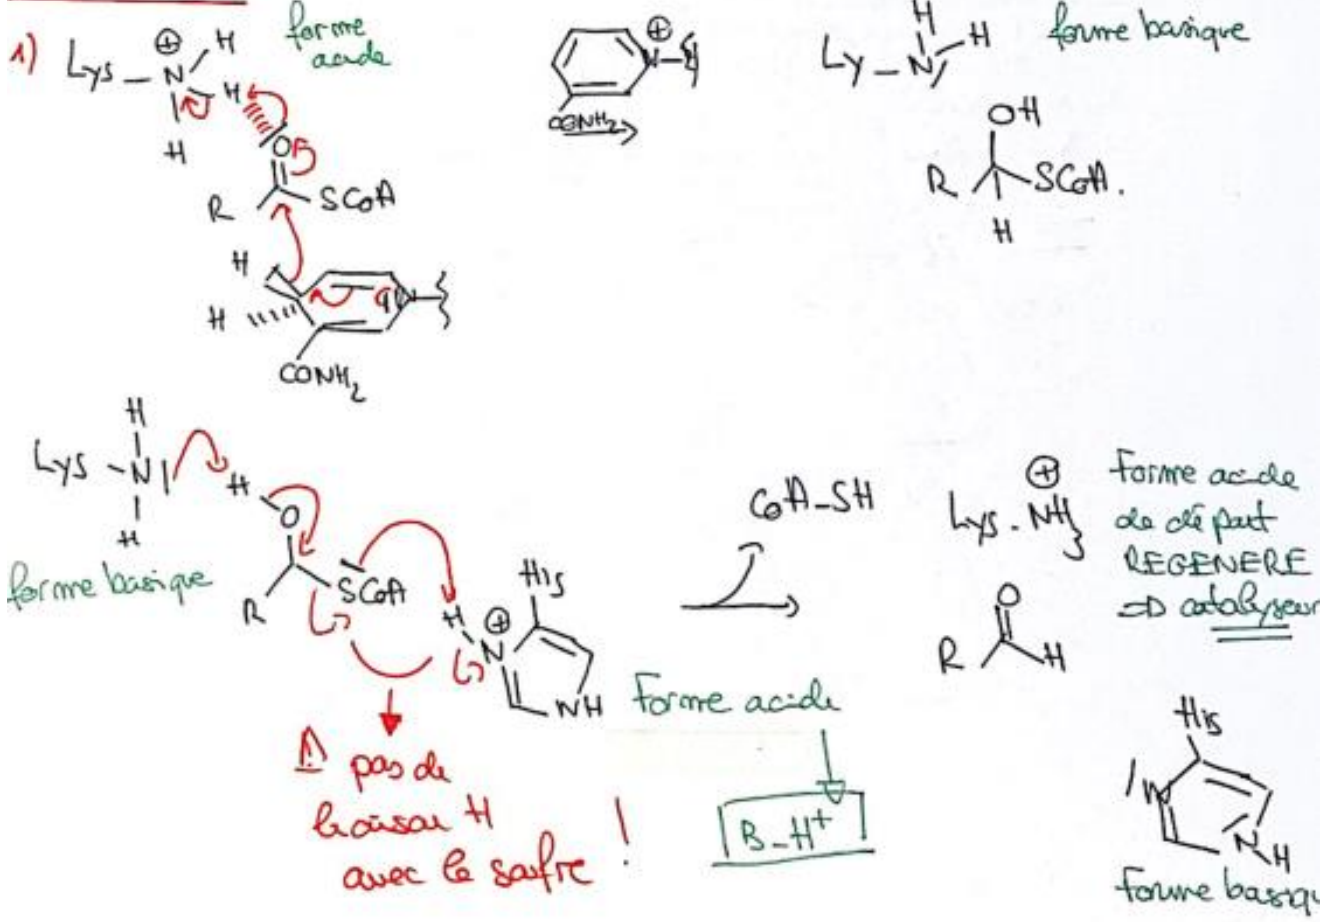 1)
Lys - N⊕ H
H
H
forme
acide
O
R
SCoA
H
H
N
CONH2
⊕
N
CONH2
Ly - N
H
H
forme basique
OH
R
SCoA.
H
H
Lys - N
H
forme basique
H
O
R
SCoA
H
⊕
N
His
NH
Forme acide
B-H+
⚠ pas de
liaison H
avec le soufre !
CoA-SH
Lys - NH3
⊕
Forme acide
de départ
REGENERE
=> catalyseur
O
R
H
His
N
N
H